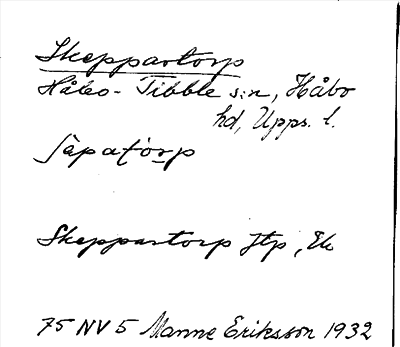 Skeppartorp
Håbo-Tibble s:n, Håbo
hd, Upps. l.
Skeppartorp
75 NV 5 Manne Eriksson 1932